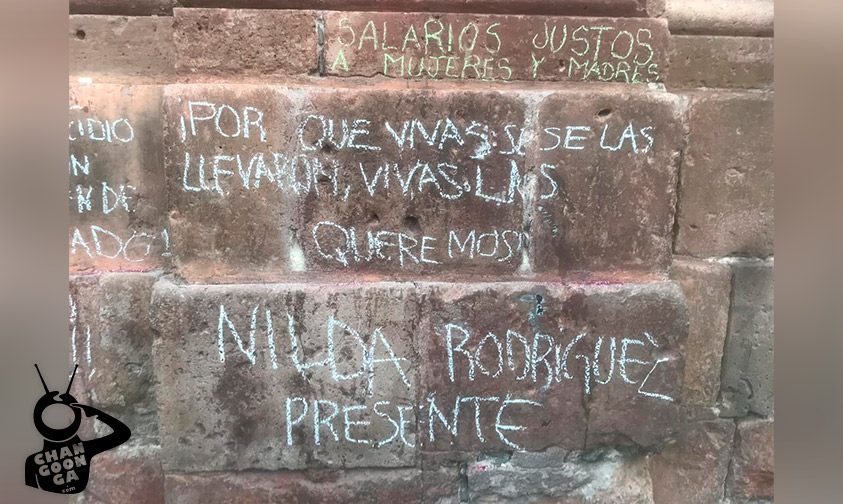 SALARIOS JUSTOS
A MUJERES Y MADRES
¡POR QUE VIVAS SE SE LAS
LLEVARON, VIVAS LAS
QUEREMOS!
CIDIO
N
EN DE
ADO!
NILDA RODRIGUEZ
PRESENTE
CHAN
GOON
GA
.com